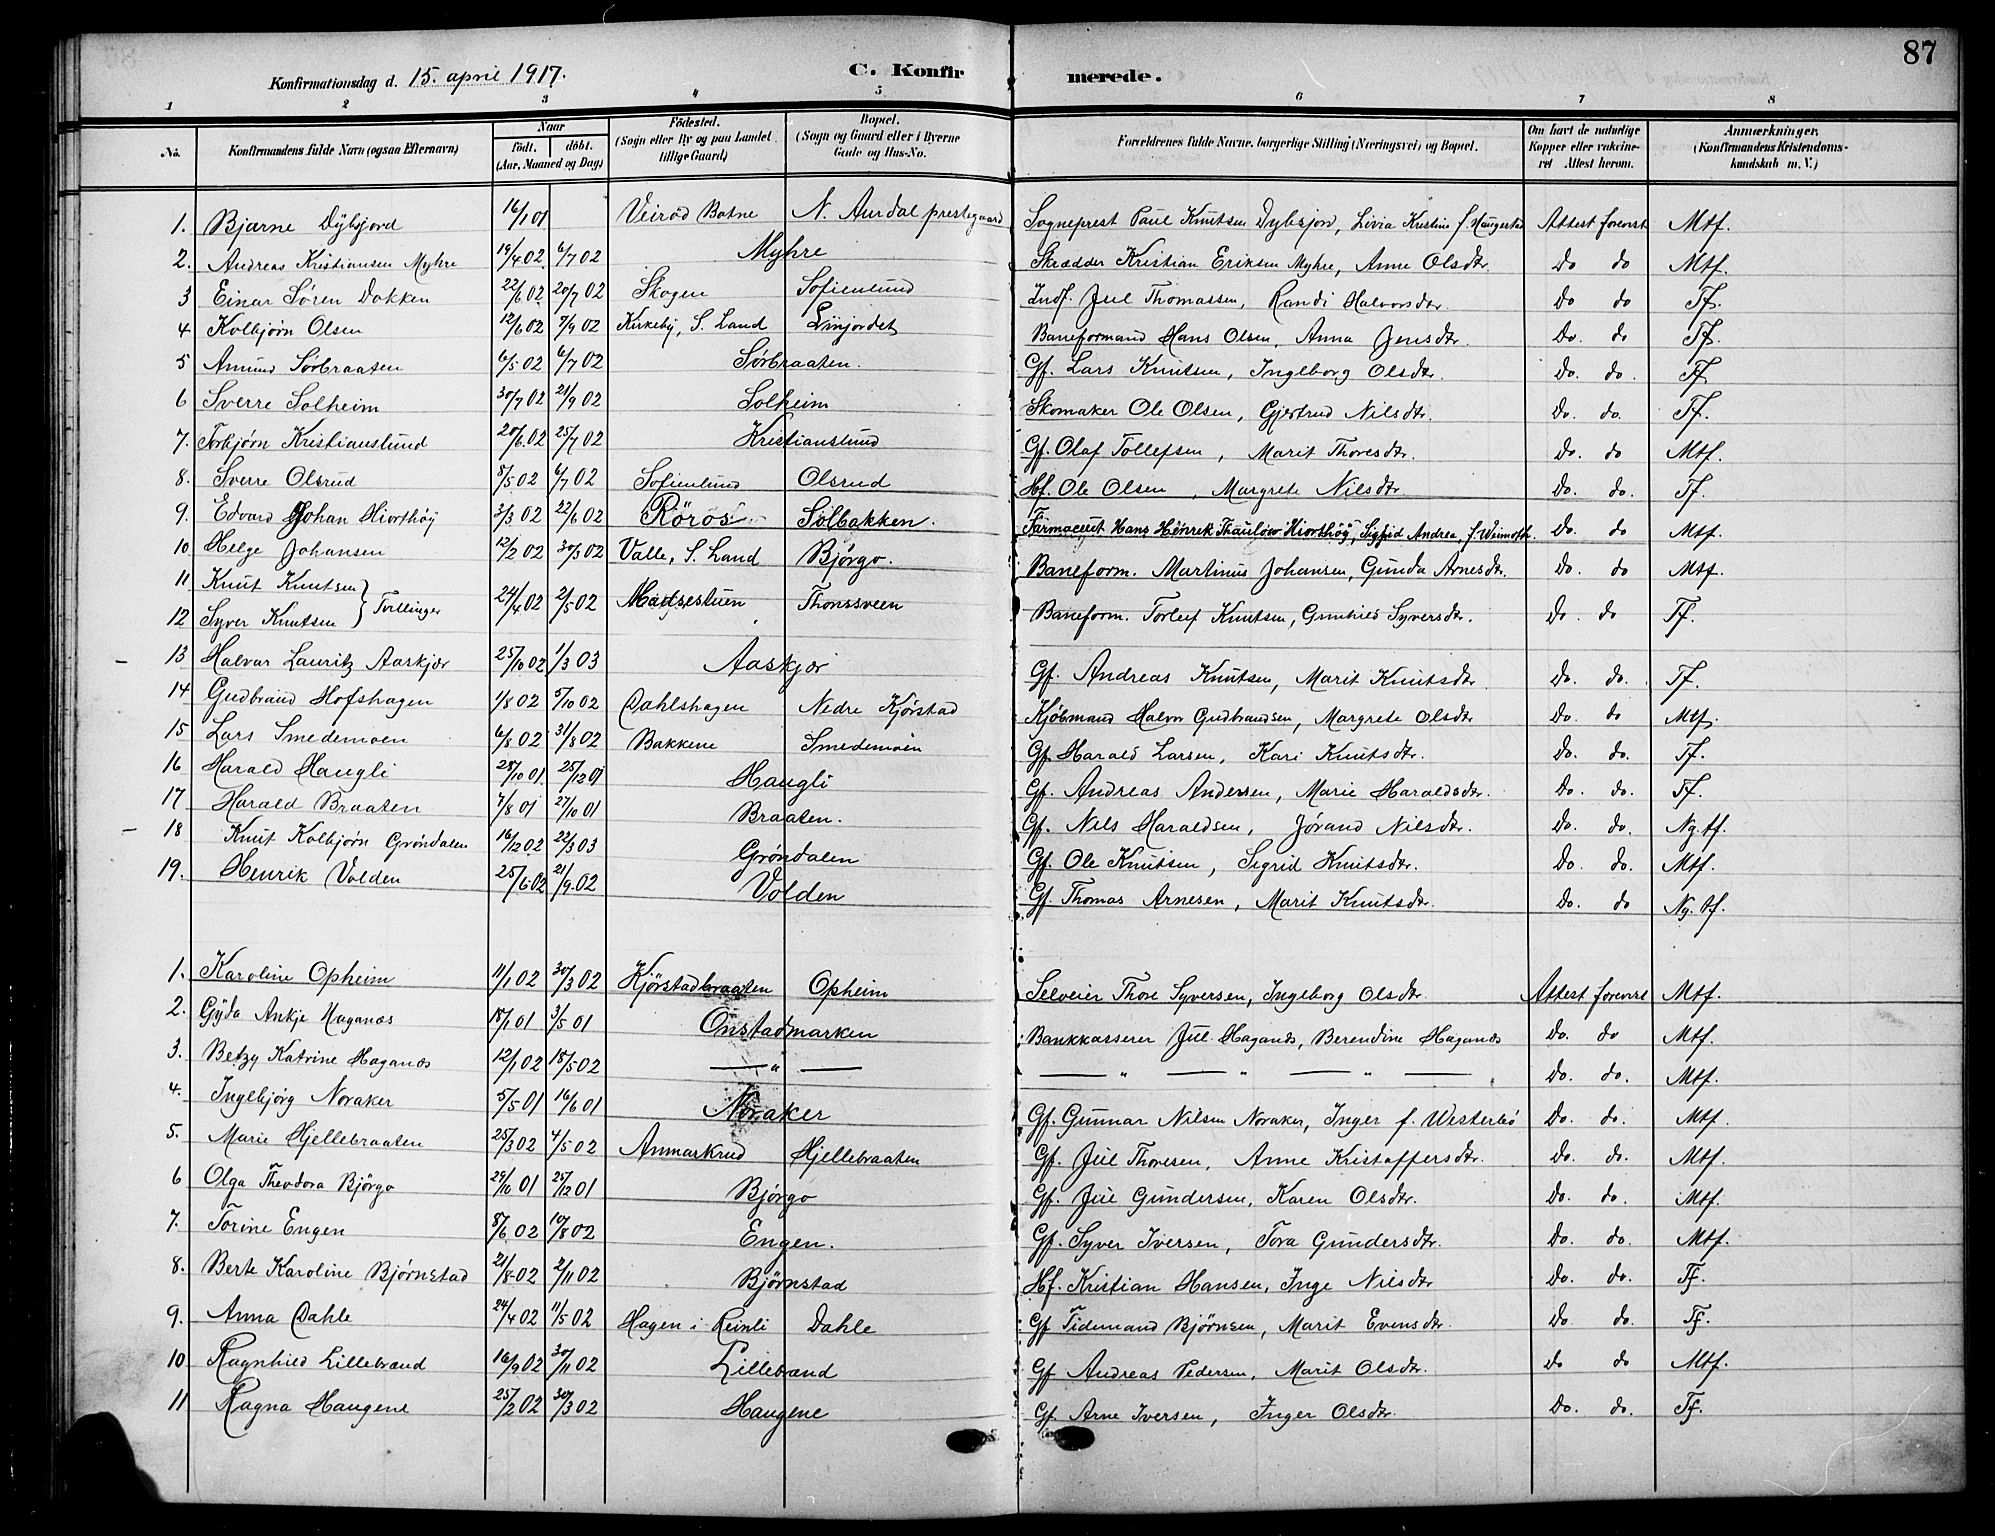 87
Konfirmationsdag d. 15. april 1917. C. Konfirmerede.
1 2 3 4 5 6 7 8
No. Konfirmandens fulde Navn (ogsaa Efternavn) Naar født. døbt. (Aar, Maaned og Dag) Fødested. (Sogn eller By og paa Landet tillige Gaard) Bopæl. (Sogn og Gaard eller i Byerne Gade og Hus-No. Forældrenes fulde Navne, borgerlige Stilling (Næringsvei) og Bopæl. Om havt de naturlige Kopper eller vaccineret Attest herom. Anmærkninger. (Konfirmandens Kristendomskundskab m. V.)
1. Bjarne Dybsjord 16/1 01 Veirød Botne N. Aurdal prestegaard Sogneprest Paul Knutsen Dybsjord, Livia Kristine f. Haugestad Attest forevist Mtf.
2. Andreas Kristiansen Myhre 19/4 02 6/7 02 Myhre Skrædder Kristian Eriksen Myhre, Anne Olsdtr. Do do Mtf.
3 Einar Søren Dokken 22/6 02 20/7 02 Skogen Sofienlund Indf. Jul Thomassen, Randi Halvorsdtr. Do do Tf.
4 Kolbjørn Olsen 12/6 02 7/9 02 Kirkeby, S. Land Linjordet Baneformand Hans Olsen, Anna Jensdtr. Do. do Tf.
5 Amund Sørbraaten 6/5 02 6/7 02 Sørbraaten. Gf. Lars Knutsen, Ingeborg Olsdtr. Do. do. Tf.
6 Sverre Solheim 30/7 02 21/9 02 Solheim Skomaker Ole Olsen, Gjertrud Nilsdtr. Do. do. Tf.
7. Torbjørn Kristianslund 20/6 02 25/7 02 Kristianslund Gf. Olaf Tollefsen, Marit Thoresdtr. Do. do Mtf.
8. Sverre Olsrud 8/5 02 6/7 02 Sofienlund Olsrud Hf. Ole Olsen, Margrete Nilsdtr. Do. do. Tf.
9. Edvard Johan Hiorthöy 3/3 02 22/6 02 Röros Solbakken. Farmaceut Hans Henrek Thaulow Hiorthöy, Sigfrid Andrea, f. Do. do Mtf.
10. Helge Johansen 12/2 02 30/3 02 Valle, S. Land Bjørgo. Baneform. Martinus Johansen, Gunda Arnesdtr. Do. do Mtf.
11 Knut Knutsen } Tvillinger 24/4 02 2/5 02 Madsestuen Thonssveen Baneform. Torleif Knutsen, Gunhild Syversdtr. Do. do Tf.
12 Syver Knutsen
13 Halvar Lauritz Aaskjær 25/10 02 1/3 03 Aaskjær Gf. Andreas Knutsen, Marit Knutsdtr Do. do. Tf.
14 Gudbrand Hofshagen 1/8 02 5/10 02 Dahlshagen Nedre Kjørstad Kjöbmand Halvor Gudbrandsen, Margrete Olsdtr Do. do Mtf.
15 Lars Smedemoen 6/8 02 31/8 02 Bakkene Smedemoen Gf. Harald Larsen, Kari Knutsdtr. Do. do. Tf.
16 Harald Haugli 28/10 01 25/12 01 Haugli Gf. Andreas Andersen, Marie Haraldsdtr. Do. do. Tf.
17 Harald Braaten 7/8 01 27/10 01 Braaten. Gf. Nils Haraldsen, Jørand Nilsdtr. Do. do. Ng. tf.
18 Knut Kolbjørn Grøndalen 16/12 02 22/3 03 Grøndalen Gf. Ole Knutsen, Sigrid Knutsdtr. Do. do. Mtf.
19. Henrik Volden 25/6 02 21/9 02 Volden Gf. Thomas Arnesen, Marit Knutsdtr. Do. do Ng. tf.
1. Karoline Opheim 11/1 02 30/3 02 Kjörstadbraaten Opheim Selveier Thore Syversen, Ingeborg Olsdtr. Attest forevist Mtf.
2. Gyda Ankje Haganæs 18/1 01 3/5 01 Onstadmarken Bankkasserer Jul Haganæs, Berendine Haganæs Do. do Mtf.
3. Betzy Katrine Haganæs 12/1 02 18/5 02 — " — — " — " — " — Do. do. Mtf.
4. Ingebjørg Noraker 5/5 01 16/6 01 Noraker Gf. Gunnar Nilsen Noraker, Inger f. Westerbö Do. do. Mtf.
5. Marie Hjellebraaten 25/3 02 4/5 02 Anmarkrud Hjellebraaten Gf. Jul Thoresen, Anne Kristoffersdtr. Do. do. Mtf.
6 Olga Theodora Björgo 29/10 01 25/12 01 Bjørgo Gf. Jul Gundersen, Karen Olsdtr. Do. do. Mtf.
7. Torine Engen 8/6 02 10/8 02 Engen. Gf. Syver Iversen, Tora Gundersdtr. Do. do. Mtf.
8. Berte Karoline Bjørnstad 21/8 02 2/11 02 Bjørnstad Hf. Kristian Hansen, Inge Nilsdtr Do. do. Tf.
9. Anna Dahle 24/4 02 11/5 02 Hagen i Reinli Dahle Gf Tidemand Bjørnsen, Marit Evensdtr. Do do. Tf.
10 Ragnhild Lillebrand 16/9 02 30/11 02 Lillebrand Gf Andreas Pedersen, Marit Olsdtr. Do do Mtf.
11 Ragna Haugene 25/2 02 30/3 02 Haugene Gf. Arne Iversen, Inger Olsdtr. Do. do. Tf.